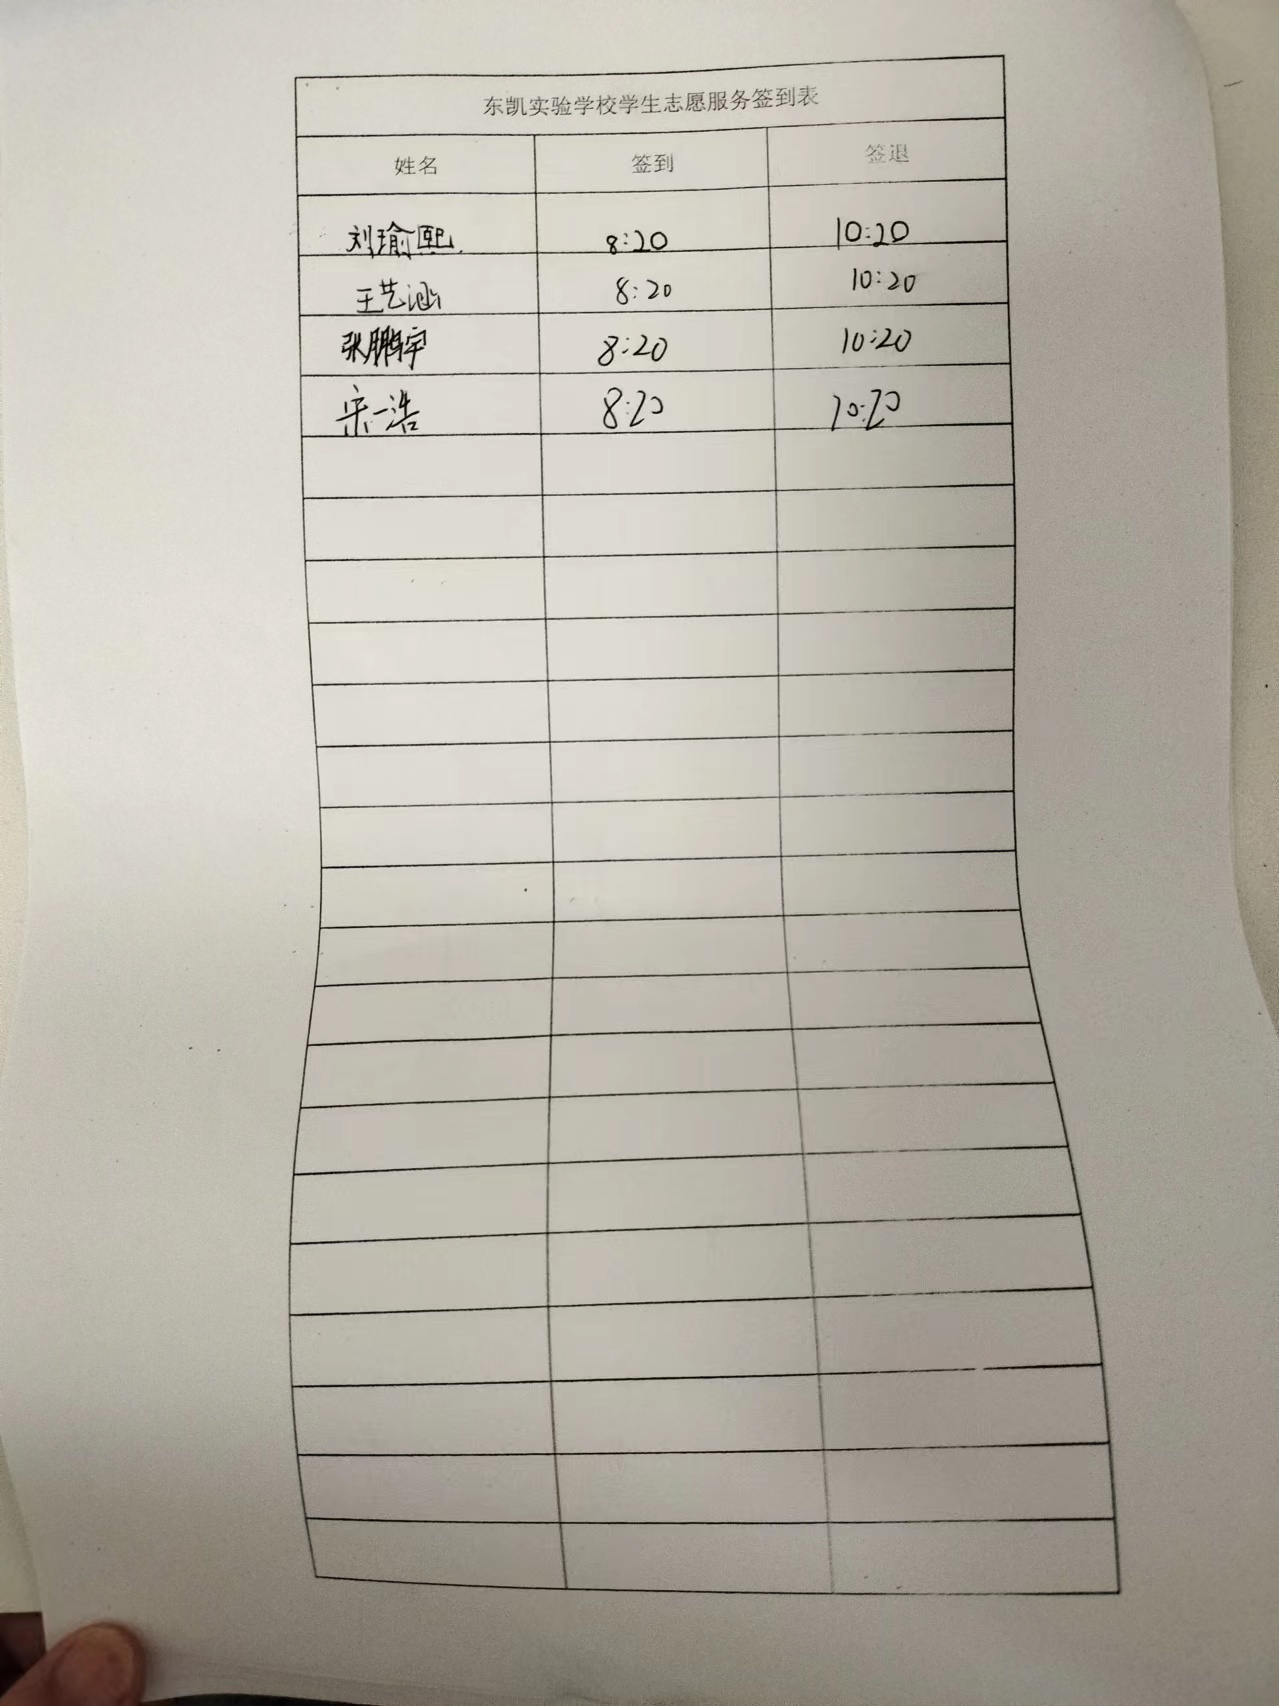 东凯实验学校学生志愿服务签到表
姓名 签到 签退
刘瑜熙 8:20 10:20
王艺涵 8:20 10:20
张鹏宇 8:20 10:20
宋一浩 8:20 10:20